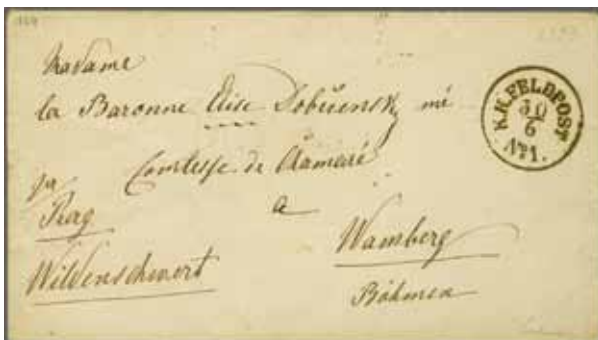 Madame
la Baronne Elise Dobřensky né
Comtesse de
a
per
Prag
Wildenschwert
Wamberg
Böhmen
K.K. FELDPOST
30
6
No 1.